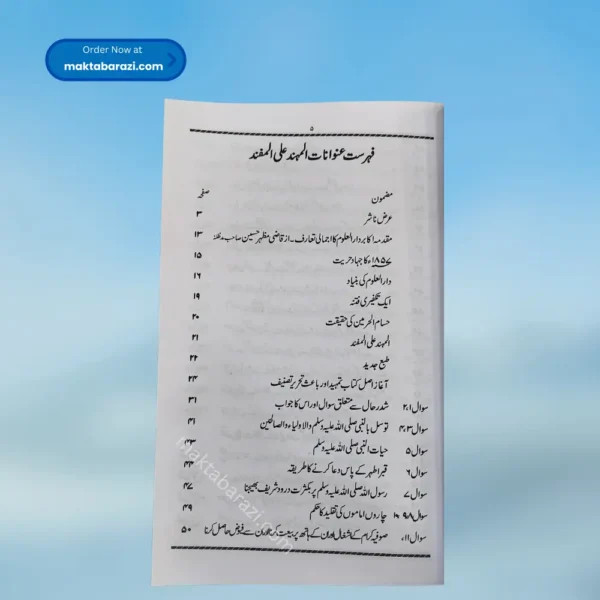 Order Now at
maktabarazi.com
۵
فہرست عنوانات المہند علی المفند
مضمون صفحہ
عرض ناشر ۳
مقدمہ اکابر دارالعلوم کا اجمالی تعارف ۔ از قاضی مظہر حسین صاحب مدظلہ ۱۳
۱۸۵۷ء کا جہاد حریت ۱۵
دارالعلوم کی بنیاد ۱۶
ایک تکفیری فتنہ ۱۹
حسام الحرمین کی حقیقت ۲۰
المہند علی المفند ۲۱
طبع جدید ۲۲
آغاز اصل کتاب تمہید اور باعث تحریر تصنیف ۲۴
سوال ۲،۱ شد رحال سے متعلق سوال اور اس کا جواب ۳۱
سوال ۴،۳ توسل بالنبی صلی اللہ علیہ وسلم والاولیاء والصالحین ۴۱
سوال ۵ حیات النبی صلی اللہ علیہ وسلم ۴۳
سوال ۶ قبر اطہر کے پاس دعا کرنے کا طریقہ ۴۴
سوال ۷ رسول اللہ صلی اللہ علیہ وسلم پر بکثرت درود شریف بھیجنا ۴۷
سوال ۸،۹،۱۰ چاروں اماموں کی تقلید کا حکم ۴۹
سوال ۱۱، صوفیہ کرام کے اشغال اور ان کے ہاتھ پر بیعت کرنا اور ان سے فیوض حاصل کرنا ۵۰
Maktabarazi.com